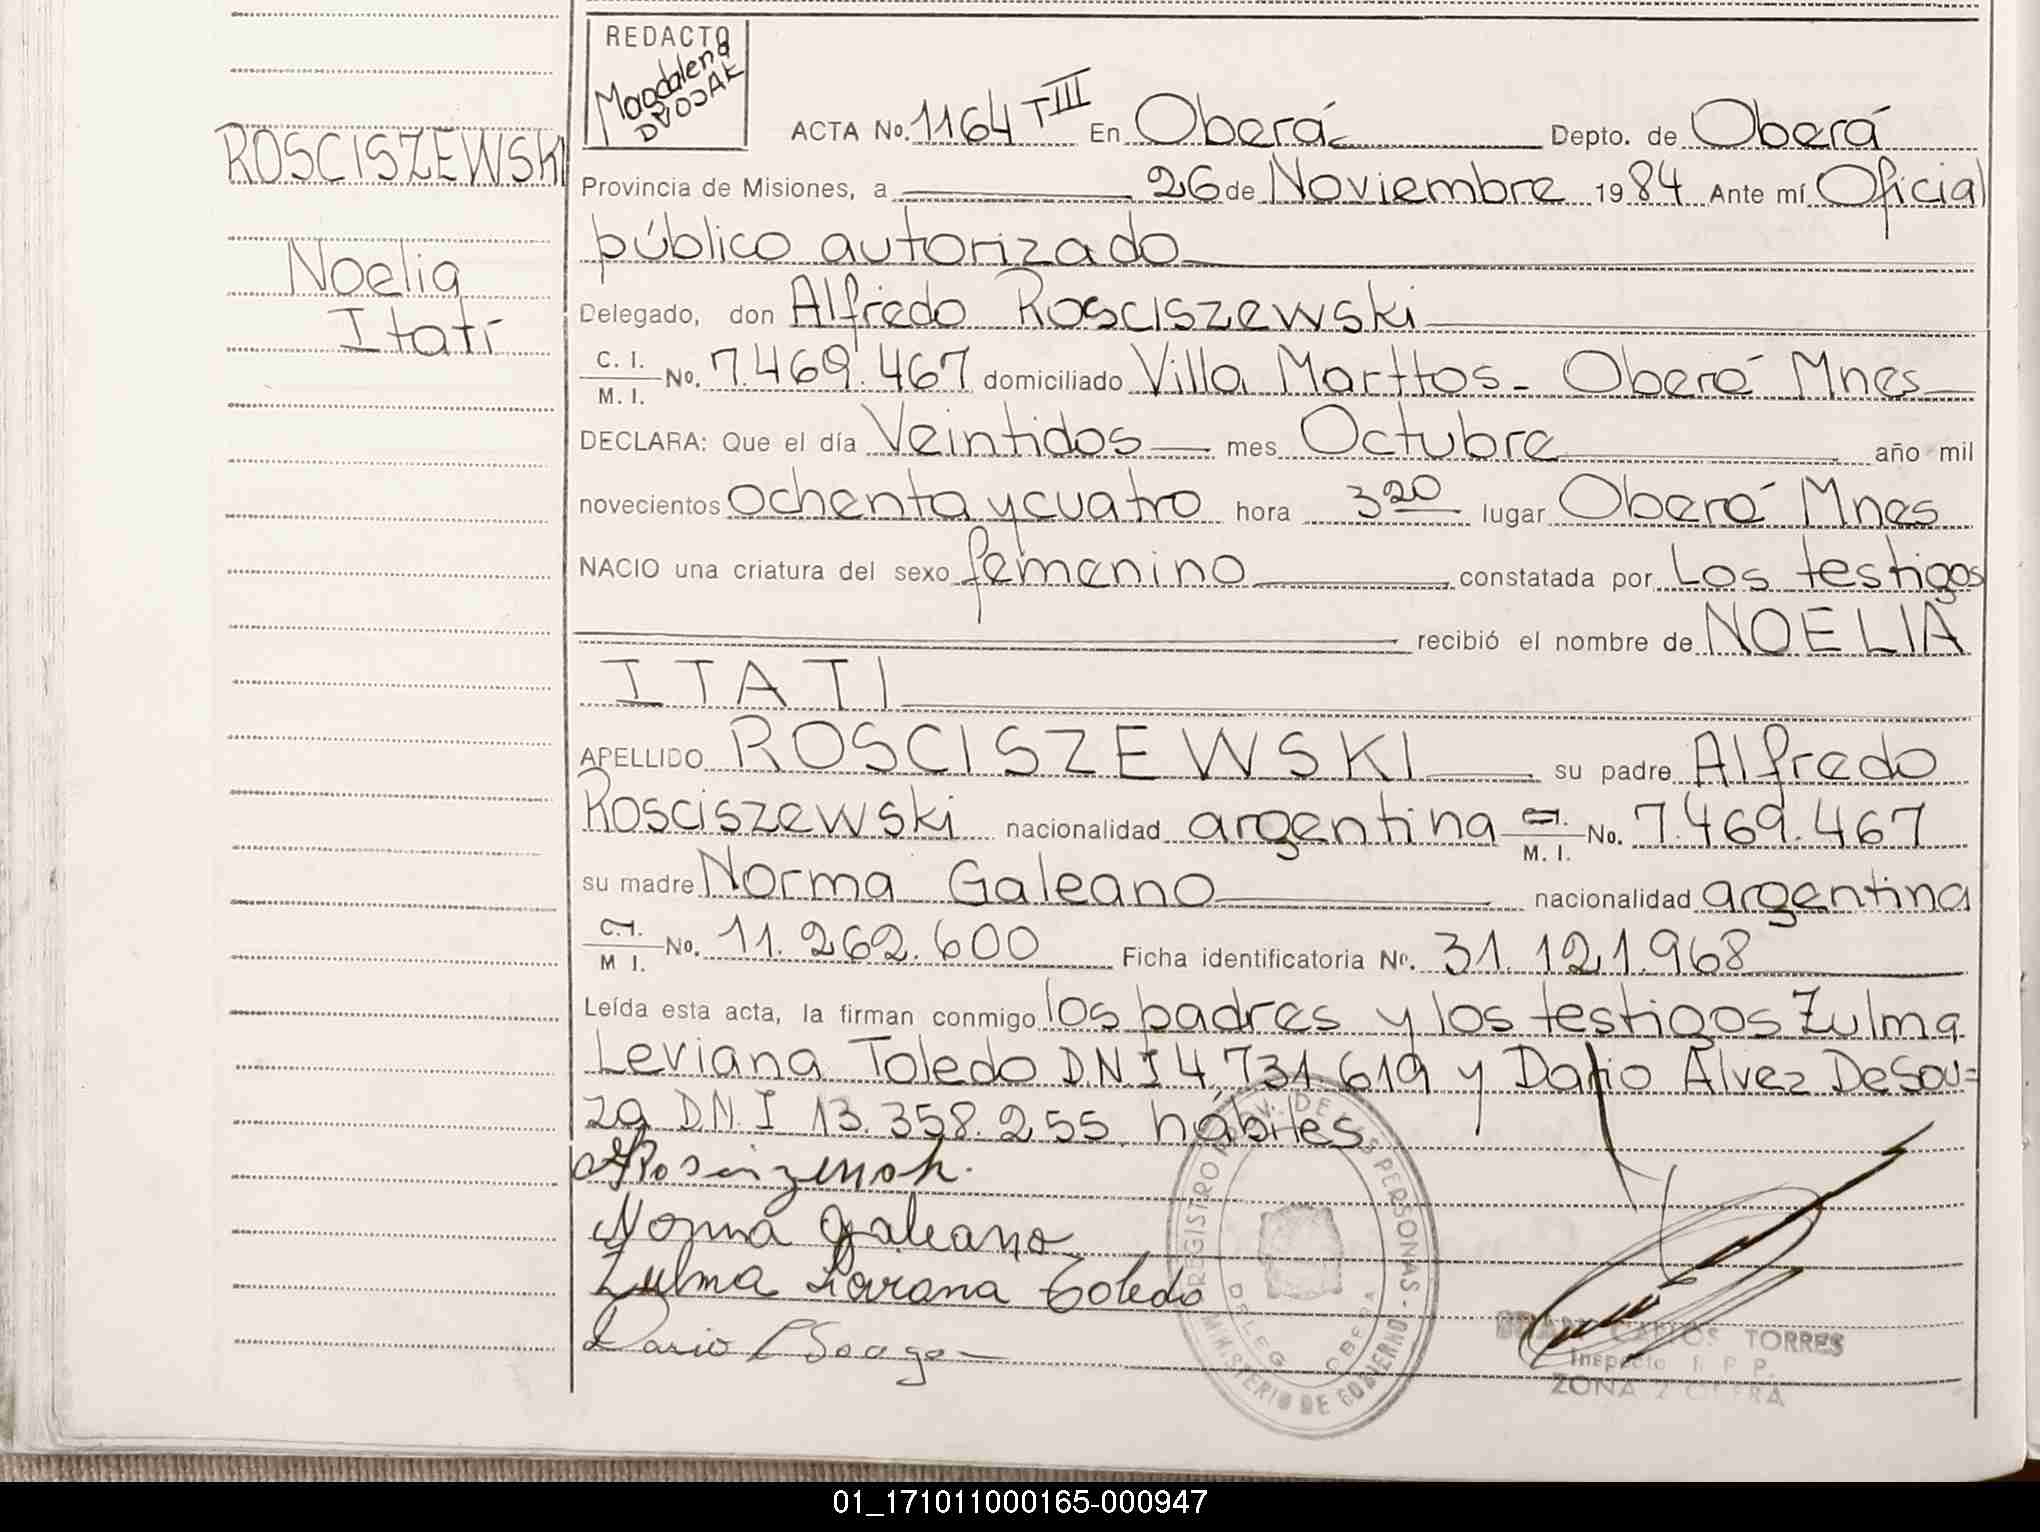 REDACTO
Magdalena
DVOJAK
ROSCISZEWSKI
Noelia
Itatí
ACTA No. 1164 TIII En Oberá Depto. de Oberá
Provincia de Misiones, a 26 de Noviembre 1984 Ante mí Oficial
público autorizado
Delegado, don Alfredo Rosciszewski
C. I.
M. I. No. 7.469.467 domiciliado Villa Marttos - Oberá Mnes
DECLARA: Que el día Veintidos mes Octubre año mil
novecientos ochenta y cuatro hora 3 20 lugar Oberá Mnes
NACIO una criatura del sexo femenino constatada por Los testigos
recibió el nombre de NOELIA
ITATI
APELLIDO ROSCISZEWSKI su padre Alfredo
Rosciszewski nacionalidad argentina C.I. M. I. No. 7.469.467
su madre Norma Galeano nacionalidad argentina
C.I.
M I. No. 11.262.600 Ficha identificatoria Nº. 31.121.968
Leída esta acta, la firman conmigo los padres y los testigos Zulma
Leviana Toledo D.N.I 4.731.619 y Dario Alvez DeSou=
za D.N.I 13.358.255 hábiles
Norma Galeano
Zulma Toledo
Dario
REGISTRO PROV. DE LAS PERSONAS - MINISTERIO DE GOBIERNO
DELEG OBERA
CARLOS TORRES
Inspecto R P P.
ZONA 2 OBERA
01_171011000165-000947